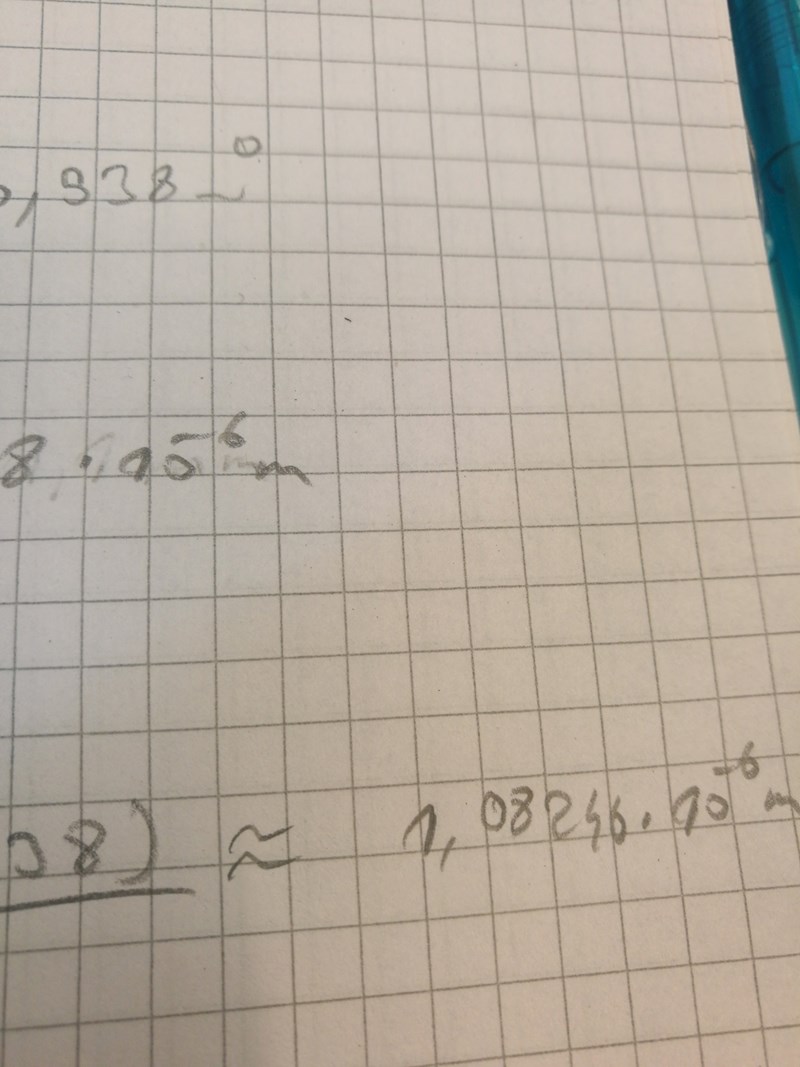 ,938~°
8 · 10⁻⁶m
38) ≈ 1,08246 · 10⁻⁶ m